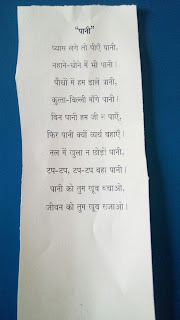 "पानी"
प्यास लगे तो पीएँ पानी,
नहाने-धोने में भी पानी।
पौधों में हम डालें पानी,
कुत्ता-बिल्ली माँगे पानी।
बिन पानी हम जी न पाएँ,
फिर पानी क्यों व्यर्थ बहाएँ।
नल में खुला न छोड़ो पानी,
टप-टप, टप-टप बहा पानी।
पानी को तुम खूब बचाओ,
जीवन को तुम खूब सजाओ।